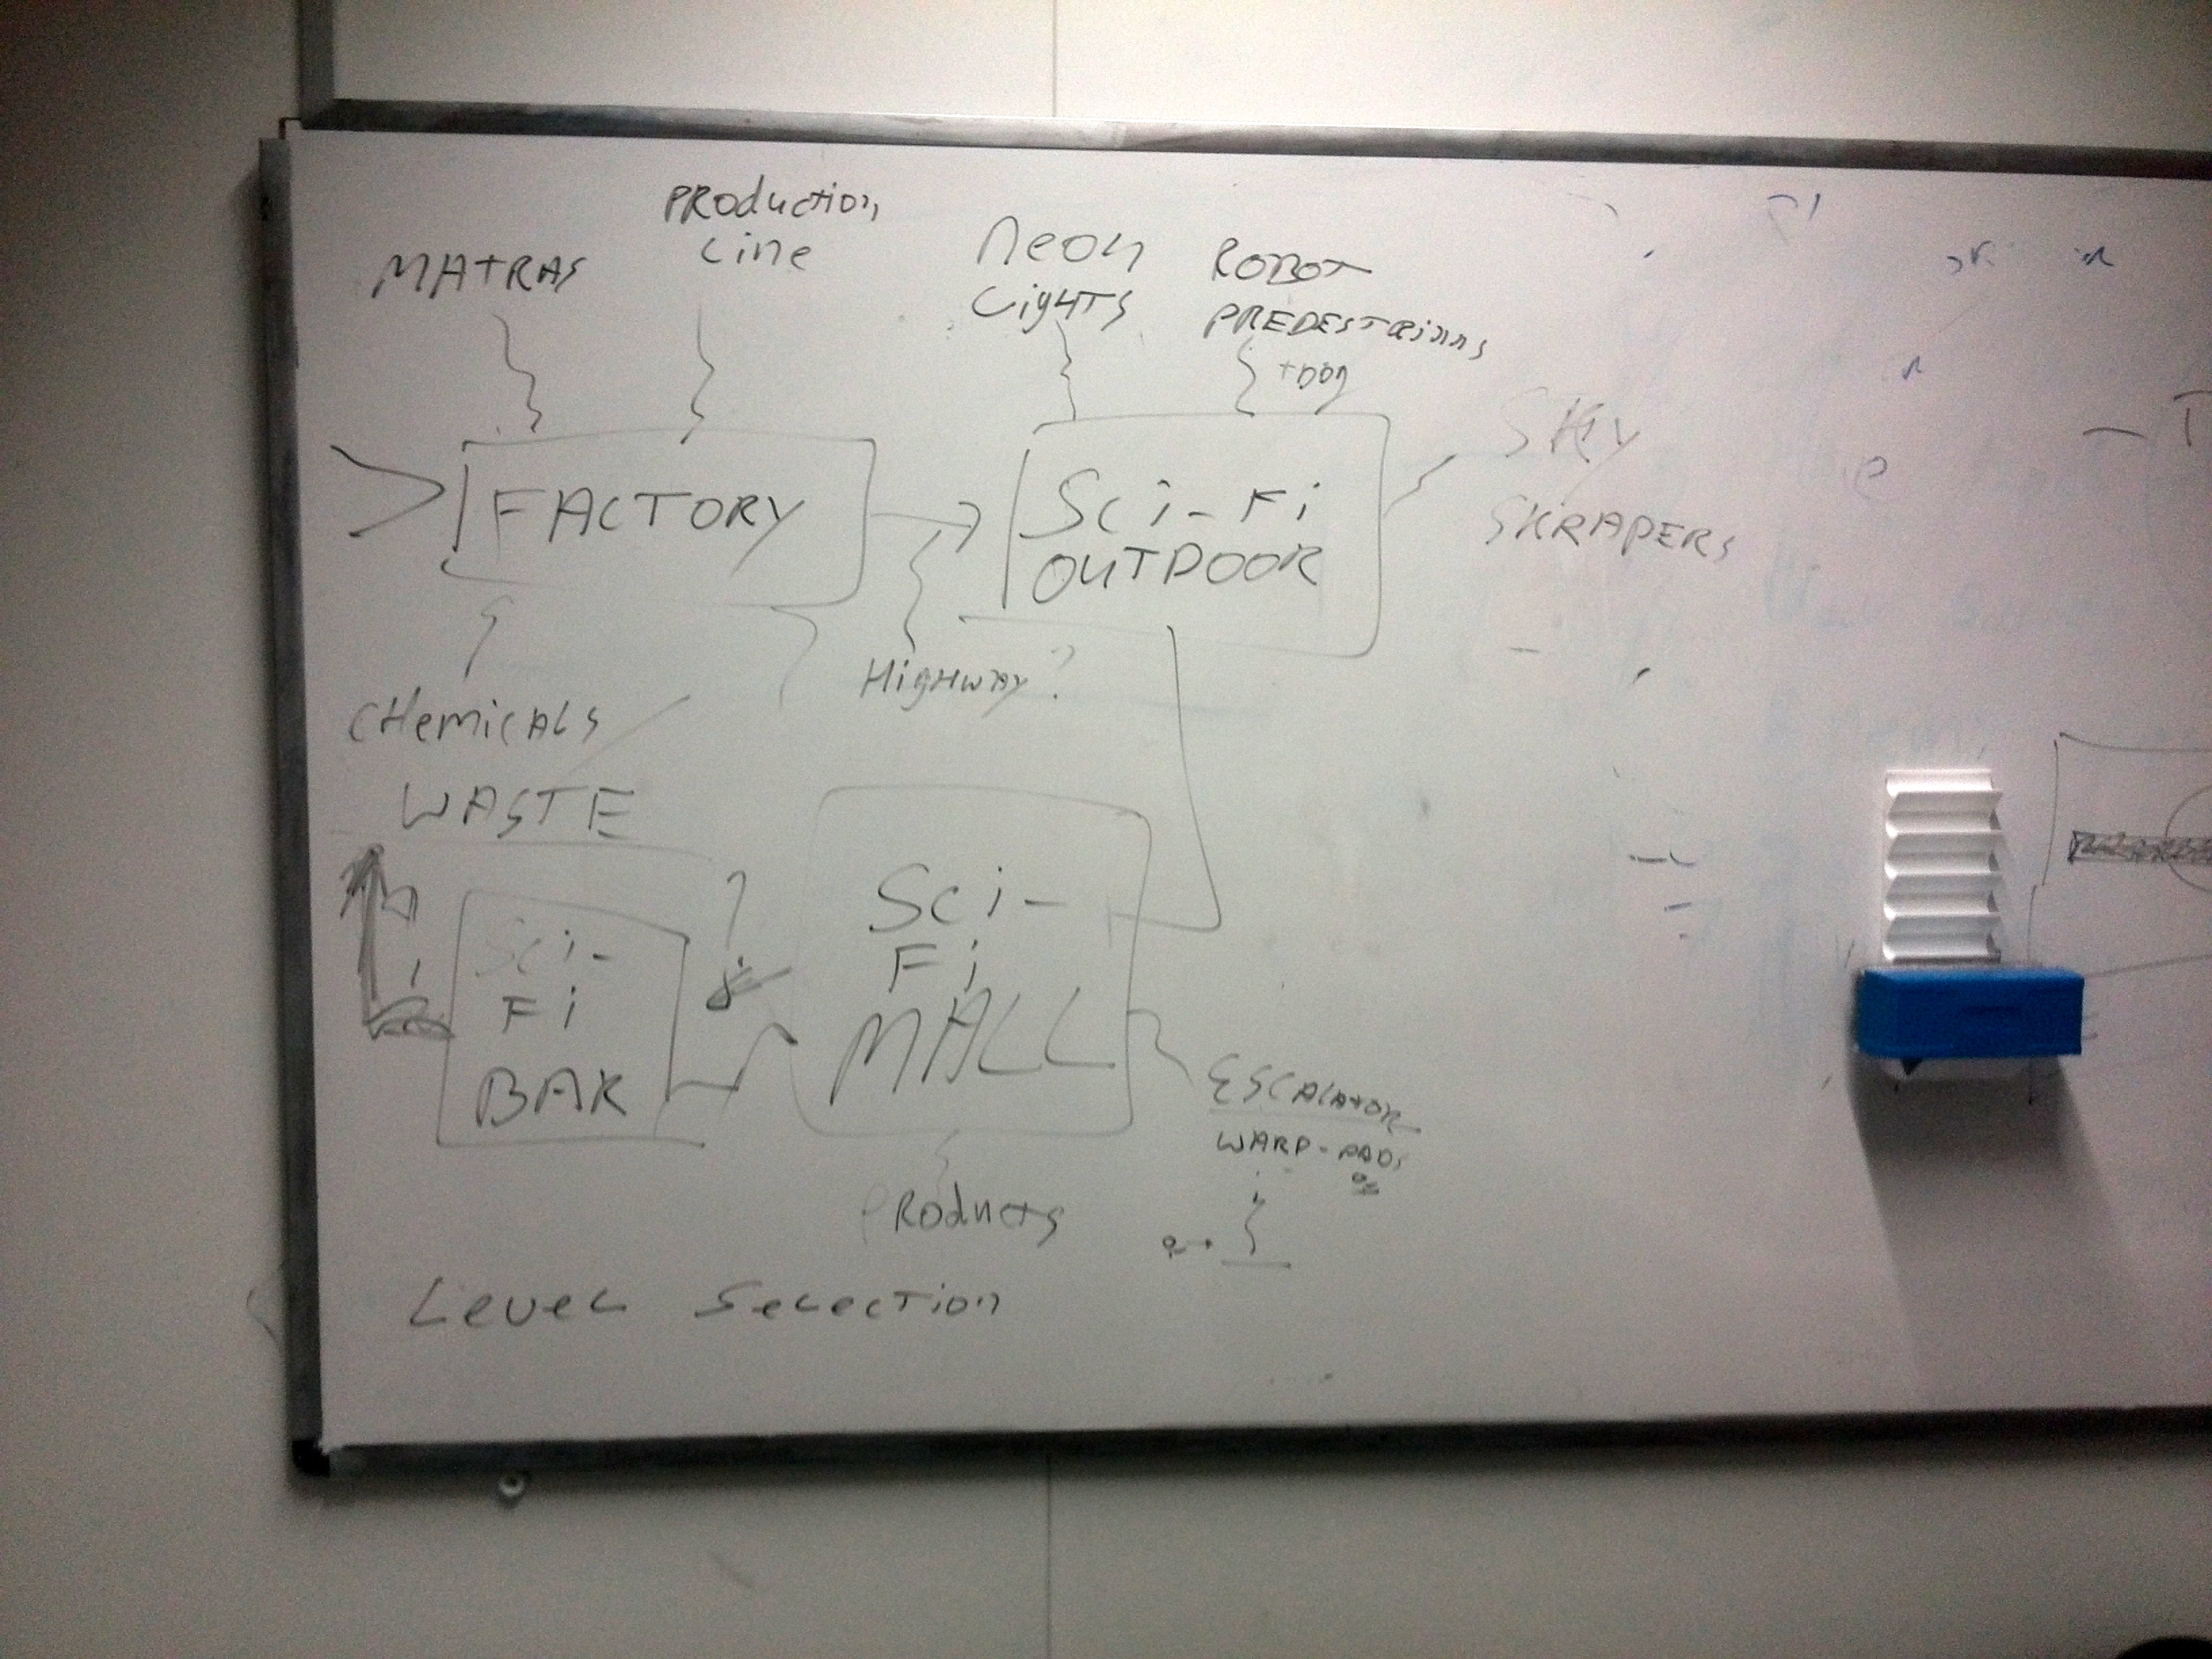 MATRAS
PRoduction
Line
Neon
LigHTS
ROBOT
PREDESTRians
+Dog
SKY
SKRAPERS
FACTORY
Sci-Fi
OUTDOOR
HigHway?
CHemicALS
WASTE
Sci-
Fi
BAR
?
Sci-
Fi
MALL
ESCALATOR
WARP-PADS
PRoducts
LeveL SeLecTion